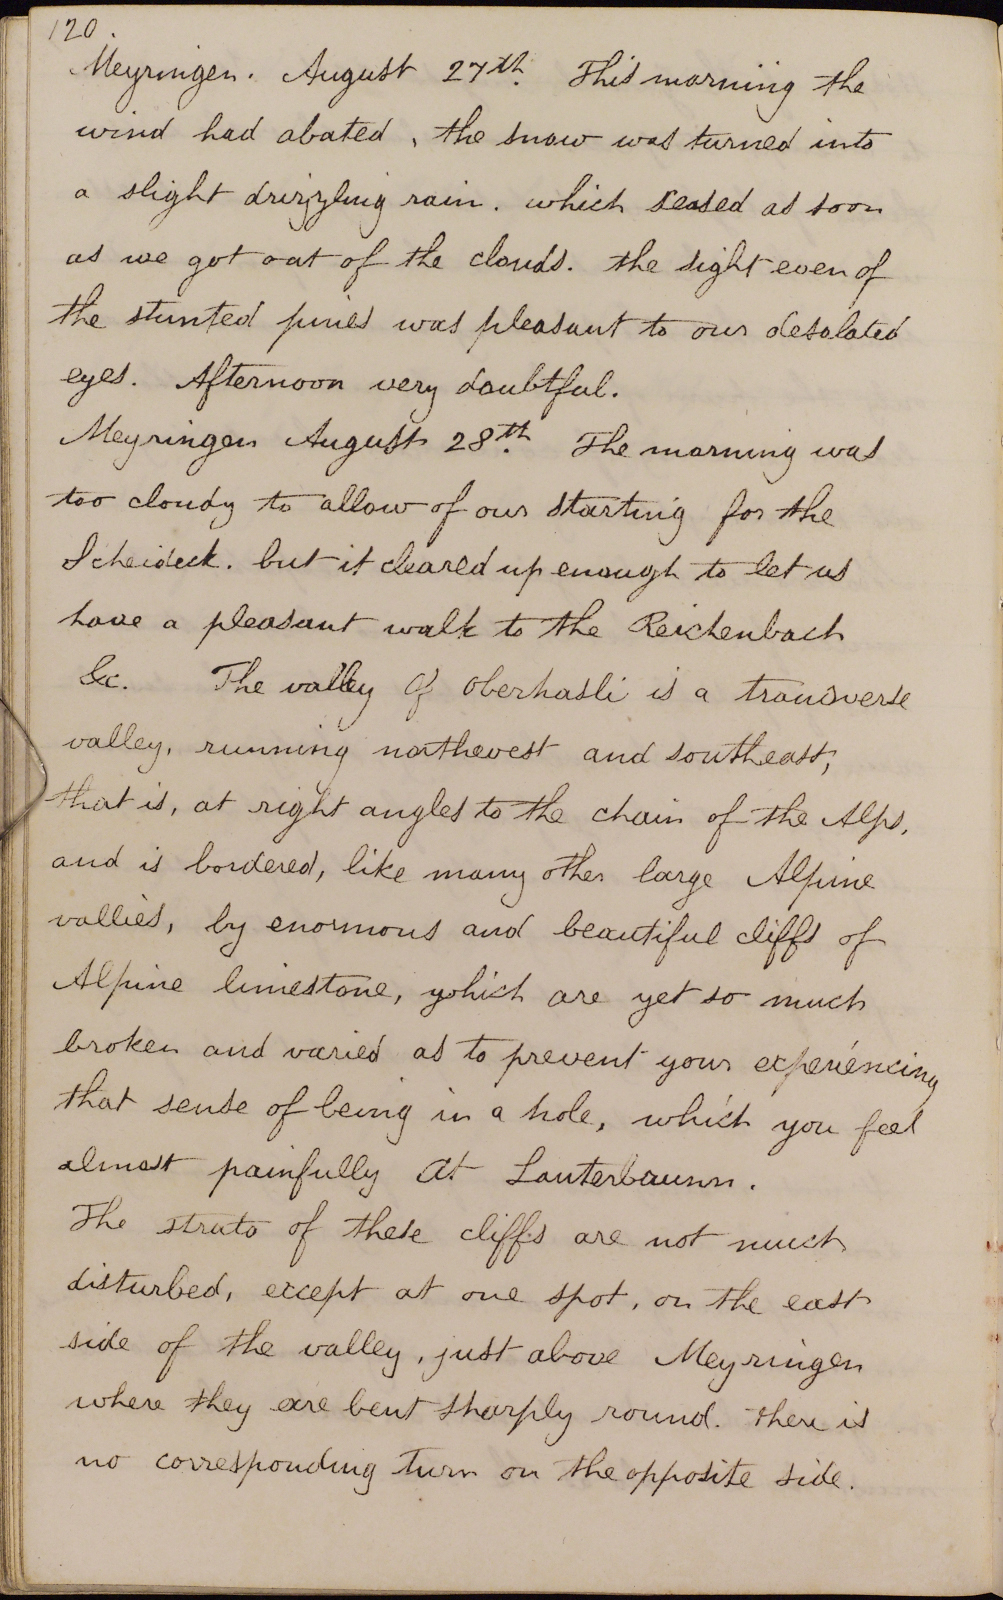 120.
Meyringen. August 27th. This morning the
wind had abated, the snow was turned into
a slight drizzling rain. which seased as soon
as we got out of the clouds. the sight even of
the stunted pines was pleasant to our desolated
eyes. Afternoon very doubtful.
Meyringen August 28th. The morning was
too cloudy to allow of our starting for the
Scheideck. but it cleared up enough to let us
have a pleasant walk to the Reichenbach
&c. The valley of Oberhasli is a transverse
valley, running northwest and southeast,
that is, at right angles to the chain of the Alps,
and is bordered, like many other large Alpine
vallies, by enormous and beautiful cliffs of
Alpine limestone, which are yet so much
broken and varied as to prevent your experiencing
that sense of being in a hole, which you feel
almost painfully at Lauterbrunn.
The strata of these cliffs are not much
disturbed, except at one spot, on the east
side of the valley, just above Meyringen
where they are bent sharply round. there is
no corresponding turn on the opposite side.